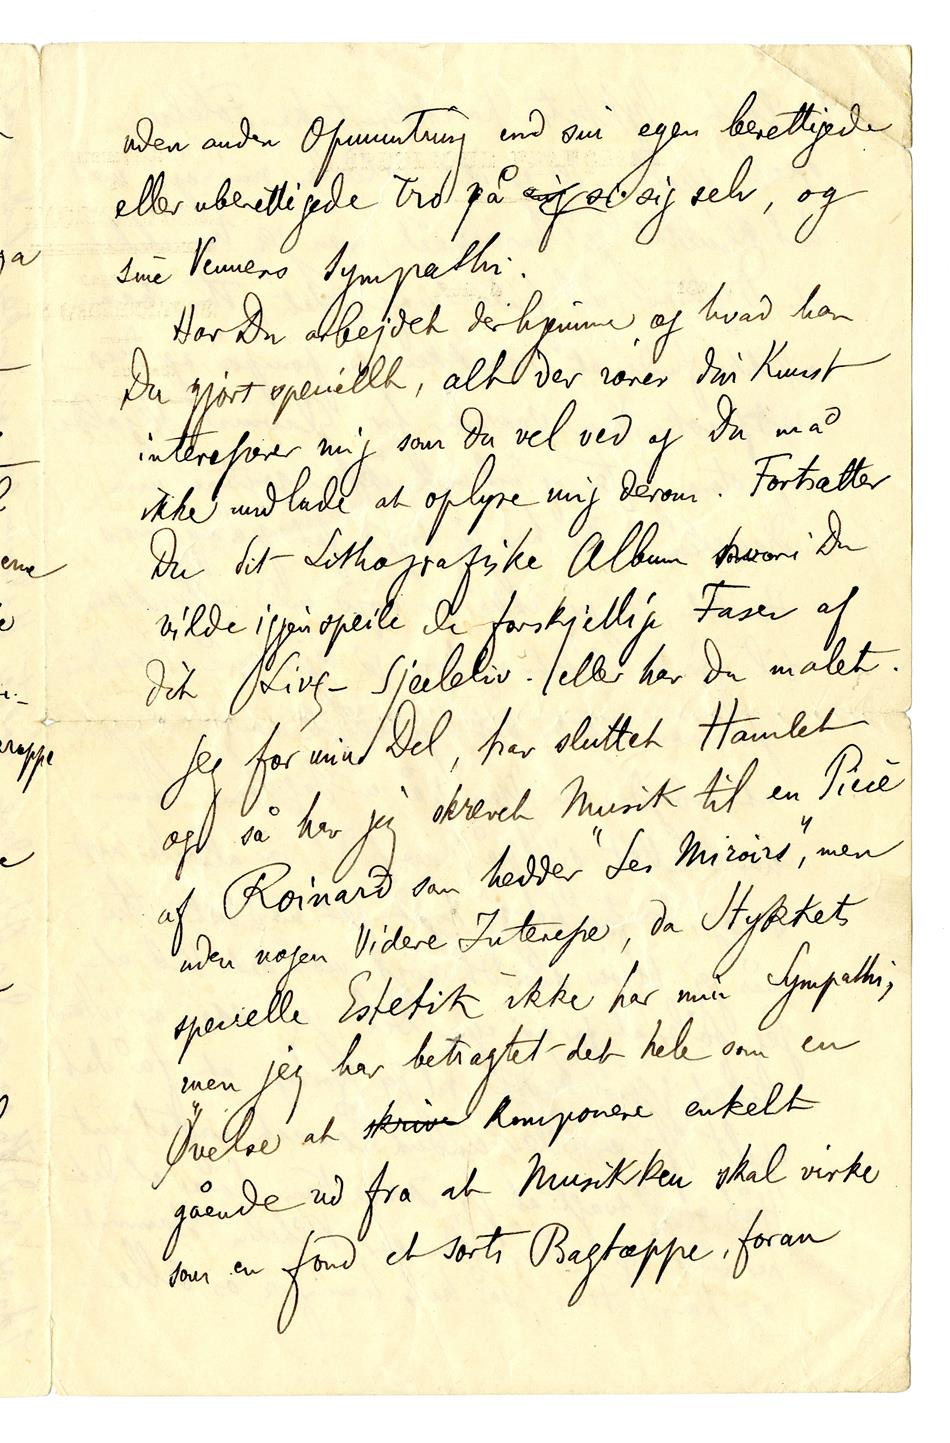 uden anden Opmuntring end sin egen berettigede
eller uberettigede Tro på sig si sig selv, og
sine Venners Sympathi.
Har Du arbejdet derhjemme og hvad har
Du gjort speciellt, alt der rører din Kunst
interesserer mig som Du vel ved og Du må
ikke undlade at oplyse mig derom. Fortsætter
Du dit Lithografiske Album hvori Du
vilde igjenspeile de forskjellige Faser af
dit Livs- Sjæleliv. eller har Du malet.
Jeg for min Del, har sluttet Hamlet
og så har jeg skrevet Musik til en Pièce
af Roinard som hedder "Les Miroirs", men
uden nogen Videre Interesse, da Stykkets
specielle Estetik ikke har min Sympathi,
men jeg har betragtet det hele som en
"Øvelse at skrive Komponere enkelt
gående ud fra at Musikken skal virke
som en fond et sorts Bagtæppe, foran
ga
erne
rappe